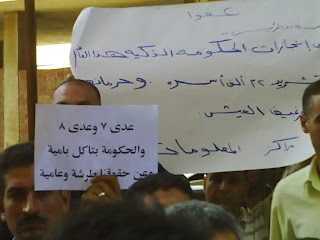 عفوا
انجازات الحكومة الذكية هذا العام
تشريد ٣٢ ألف أسره وحرمانهم
العيش
مراكز المعلومات
عدى ٧ وعدى ٨
والحكومة بتاكل بامية
وعن حقوقنا طرشة وعامية